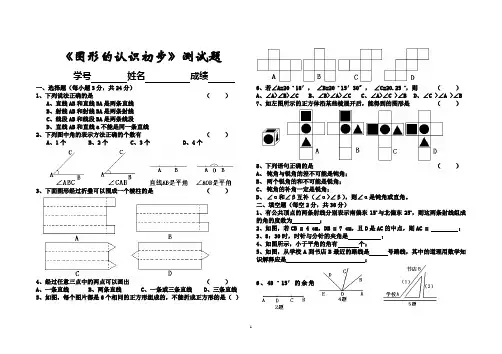 《图形的认识初步》测试题
学号 姓名 成绩
一、选择题（每小题3分，共24分）
1、下列说法正确的是 （ ）
A、直线AB和直线BA是两条直线
B、射线AB和射线BA是两条射线
C、线段AB和线段BA是两条线段
D、直线AB和直线a不能是同一条直线
2、下列图中角的表示方法正确的个数有 （ ）
A、1个 B、2个 C、3个 D、4个
C C
B A B A B A O B
∠ABC ∠CAB 直线AB是平角 ∠AOB是平角
3、下面图形经过折叠可以围成一个棱柱的是 （ ）
A B
C D
4、经过任意三点中的两点可以画出 （ ）
A、一条直线 B、两条直线 C、一条或三条直线 D、三条直线
5、如图，每个图片都是6个相同的正方形组成的，不能折成正方形的是（ ）
A B C D
6、若∠A=20°18′，∠B=20°15′30″，∠C=20.25°，则 （ ）
A、∠A〉∠B〉∠C B、∠B〉∠A〉∠C C、∠A〉∠C〉∠B D、∠C〉∠A〉∠B
7、如左图所示的正方体沿某些棱展开后，能得到的图形是 （ ）
A B C D
8、下列语句正确的是 （ ）
A、钝角与锐角的差不可能是钝角；
B、两个锐角的和不可能是锐角；
C、钝角的补角一定是锐角；
D、∠α和∠β互补（∠α〉∠β），则∠α是钝角或直角。
二、填空题（每空2分，共30分）
1、有公共顶点的两条射线分别表示南偏东15°与北偏东25°，则这两条射线组成的角的度数为 ；
2、如图，若CB = 4 cm，DB = 7 cm，且D是AC的中点，则AC = ；
3、8：30时，时针与分针的夹角是 ；
4、如图所示，小于平角的角有 个；
5、如图，从学校A到书店B最近的路线是 号路线，其中的道理用数学知识解释应是 ；
6、48°15′的余角
A D C B
2题
C
D B
E O A
4题
书店B
(1) (2)
学校A
5题